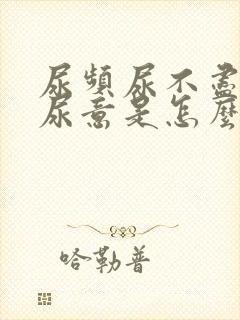 尿頻尿不盡
尿意是怎麼
哈勒普